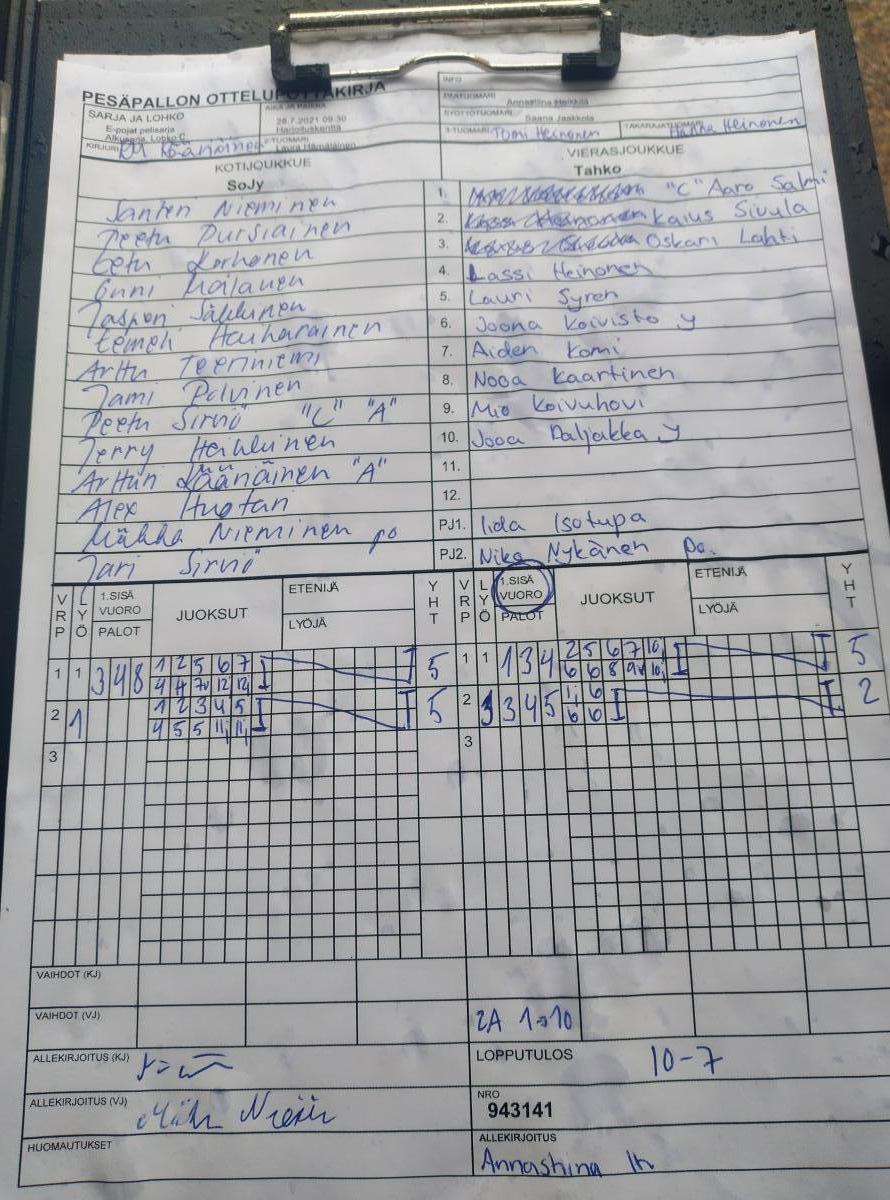 PESÄPALLON OTTELUPÖYTÄKIRJA
INFO
SARJA JA LOHKO
E-pojat pelisarja
Alkusarja, Lohko C
AIKA JA PAIKKA
28.7.2021 09:30
Harjoituskenttä
PÄÄTUOMARI
Annastiina Heikkilä
SYÖTTÖTUOMARI
Saana Jaakkola
KIRJURI
2-TUOMARI
Laura Hämäläinen
3-TUOMARI Tomi Heinonen
TAKARAJATUOMARI Hanna Heinonen
KOTIJOUKKUE
SoJy
VIERASJOUKKUE
Tahko
Santeri Nieminen
Peetu Pursiainen
Eetu Korhonen
Onni Moilanen
Jasperi
Eemeli
Arttu Teeriniemi
Jami Polvinen
Peetu Sirviö "C" "A"
Jerry Heikkinen
Käänäinen "A"
Alex
Nieminen po
Jari Sirviö
1. "C" Aaro Salmi
2. Kaius Sivula
3. Oskari Lahti
4. Lassi Heinonen
5. Lauri Syren
6. Joona Koivisto y
7. Aiden Komi
8. Nooa Kaartinen
9. Mio Koivuhovi
10. Jooa Paljakka y
11.
12.
PJ1. Iida Isotupa
PJ2. Nika Nykänen po.
VRP LYÖ 1.SISÄ VUORO PALOT JUOKSUT ETENIJÄ LYÖJÄ YHT
VRP LYÖ 1.SISÄ VUORO PALOT JUOKSUT ETENIJÄ LYÖJÄ YHT
1 1 3 4 8 1 2 5 6 7 5
4 4 7v 12 12
1 1 1 3 4 2 5 6 7 10 5
6 6 8 9v 10
2 1 1 2 3 4 5 5
4 5 5 11 11
2 3 4 5 1 6 2
6 6
3
3
VAIHDOT (KJ)
VAIHDOT (VJ)
2A 1→10
ALLEKIRJOITUS (KJ)
LOPPUTULOS 10-7
ALLEKIRJOITUS (VJ)
NRO
943141
HUOMAUTUKSET
ALLEKIRJOITUS
Annastiina